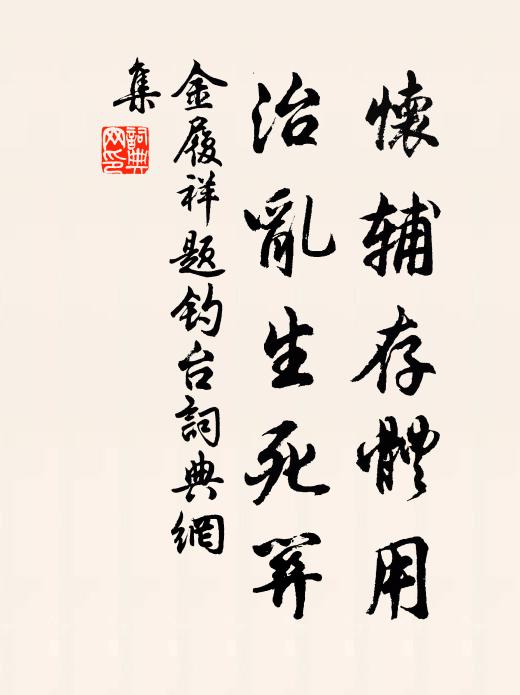 懷辅存體用
治亂生死
金履祥题釣台詞典網
集
詞典網印